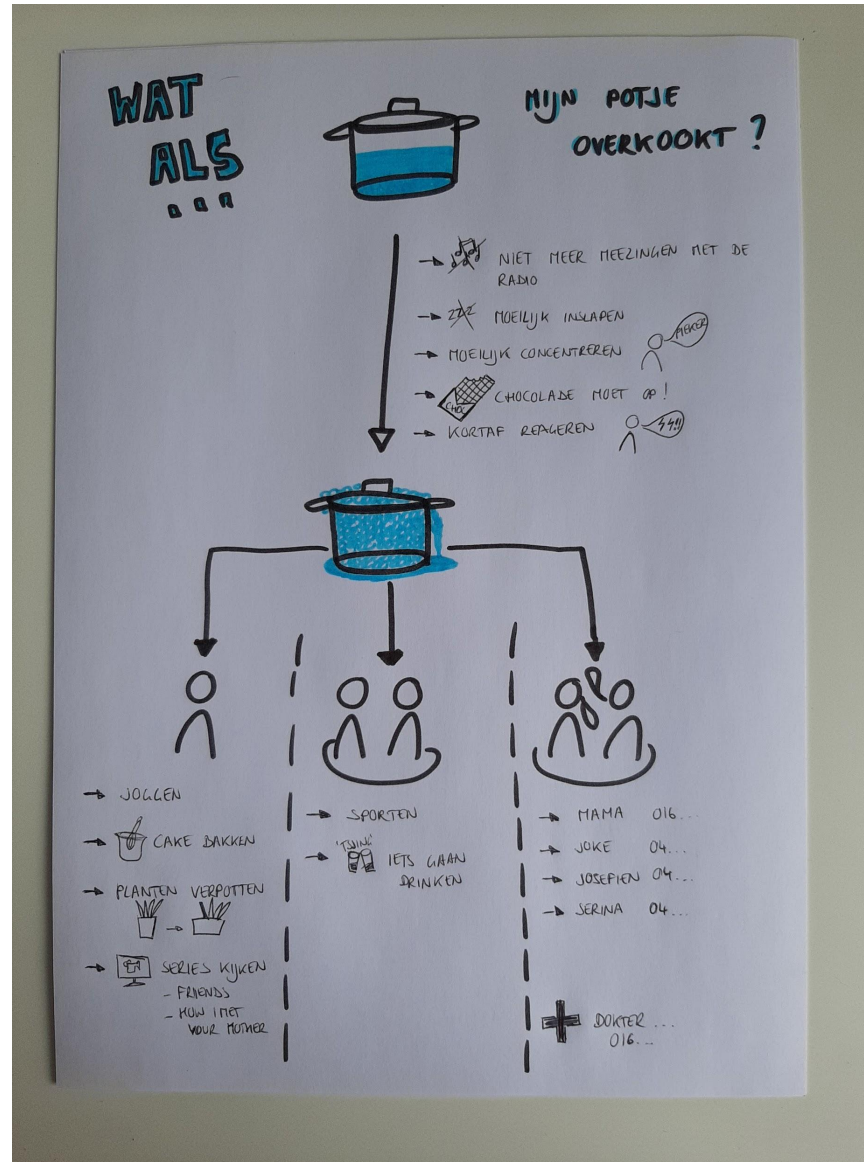 WAT
ALS
...
MIJN POTJE
OVERKOOKT ?
→ NIET MEER MEEZINGEN MET DE
RADIO
→ ZZZ MOEILIJK INSLAPEN
→ MOEILIJK CONCENTREREN PIEKER
→ CHOC CHOCOLADE MOET OP!
→ KORTAF REAGEREN !!
→ JOGGEN
→ CAKE BAKKEN
→ PLANTEN VERPOTTEN
→ SERIES KIJKEN
- FRIENDS
- HOW I MET
YOUR MOTHER
→ SPORTEN
'TSJING'
→ IETS GAAN
DRINKEN
→ MAMA 016...
→ JOKE 04...
→ JOSEFIEN 04...
→ SERINA 04...
DOKTER ...
016...